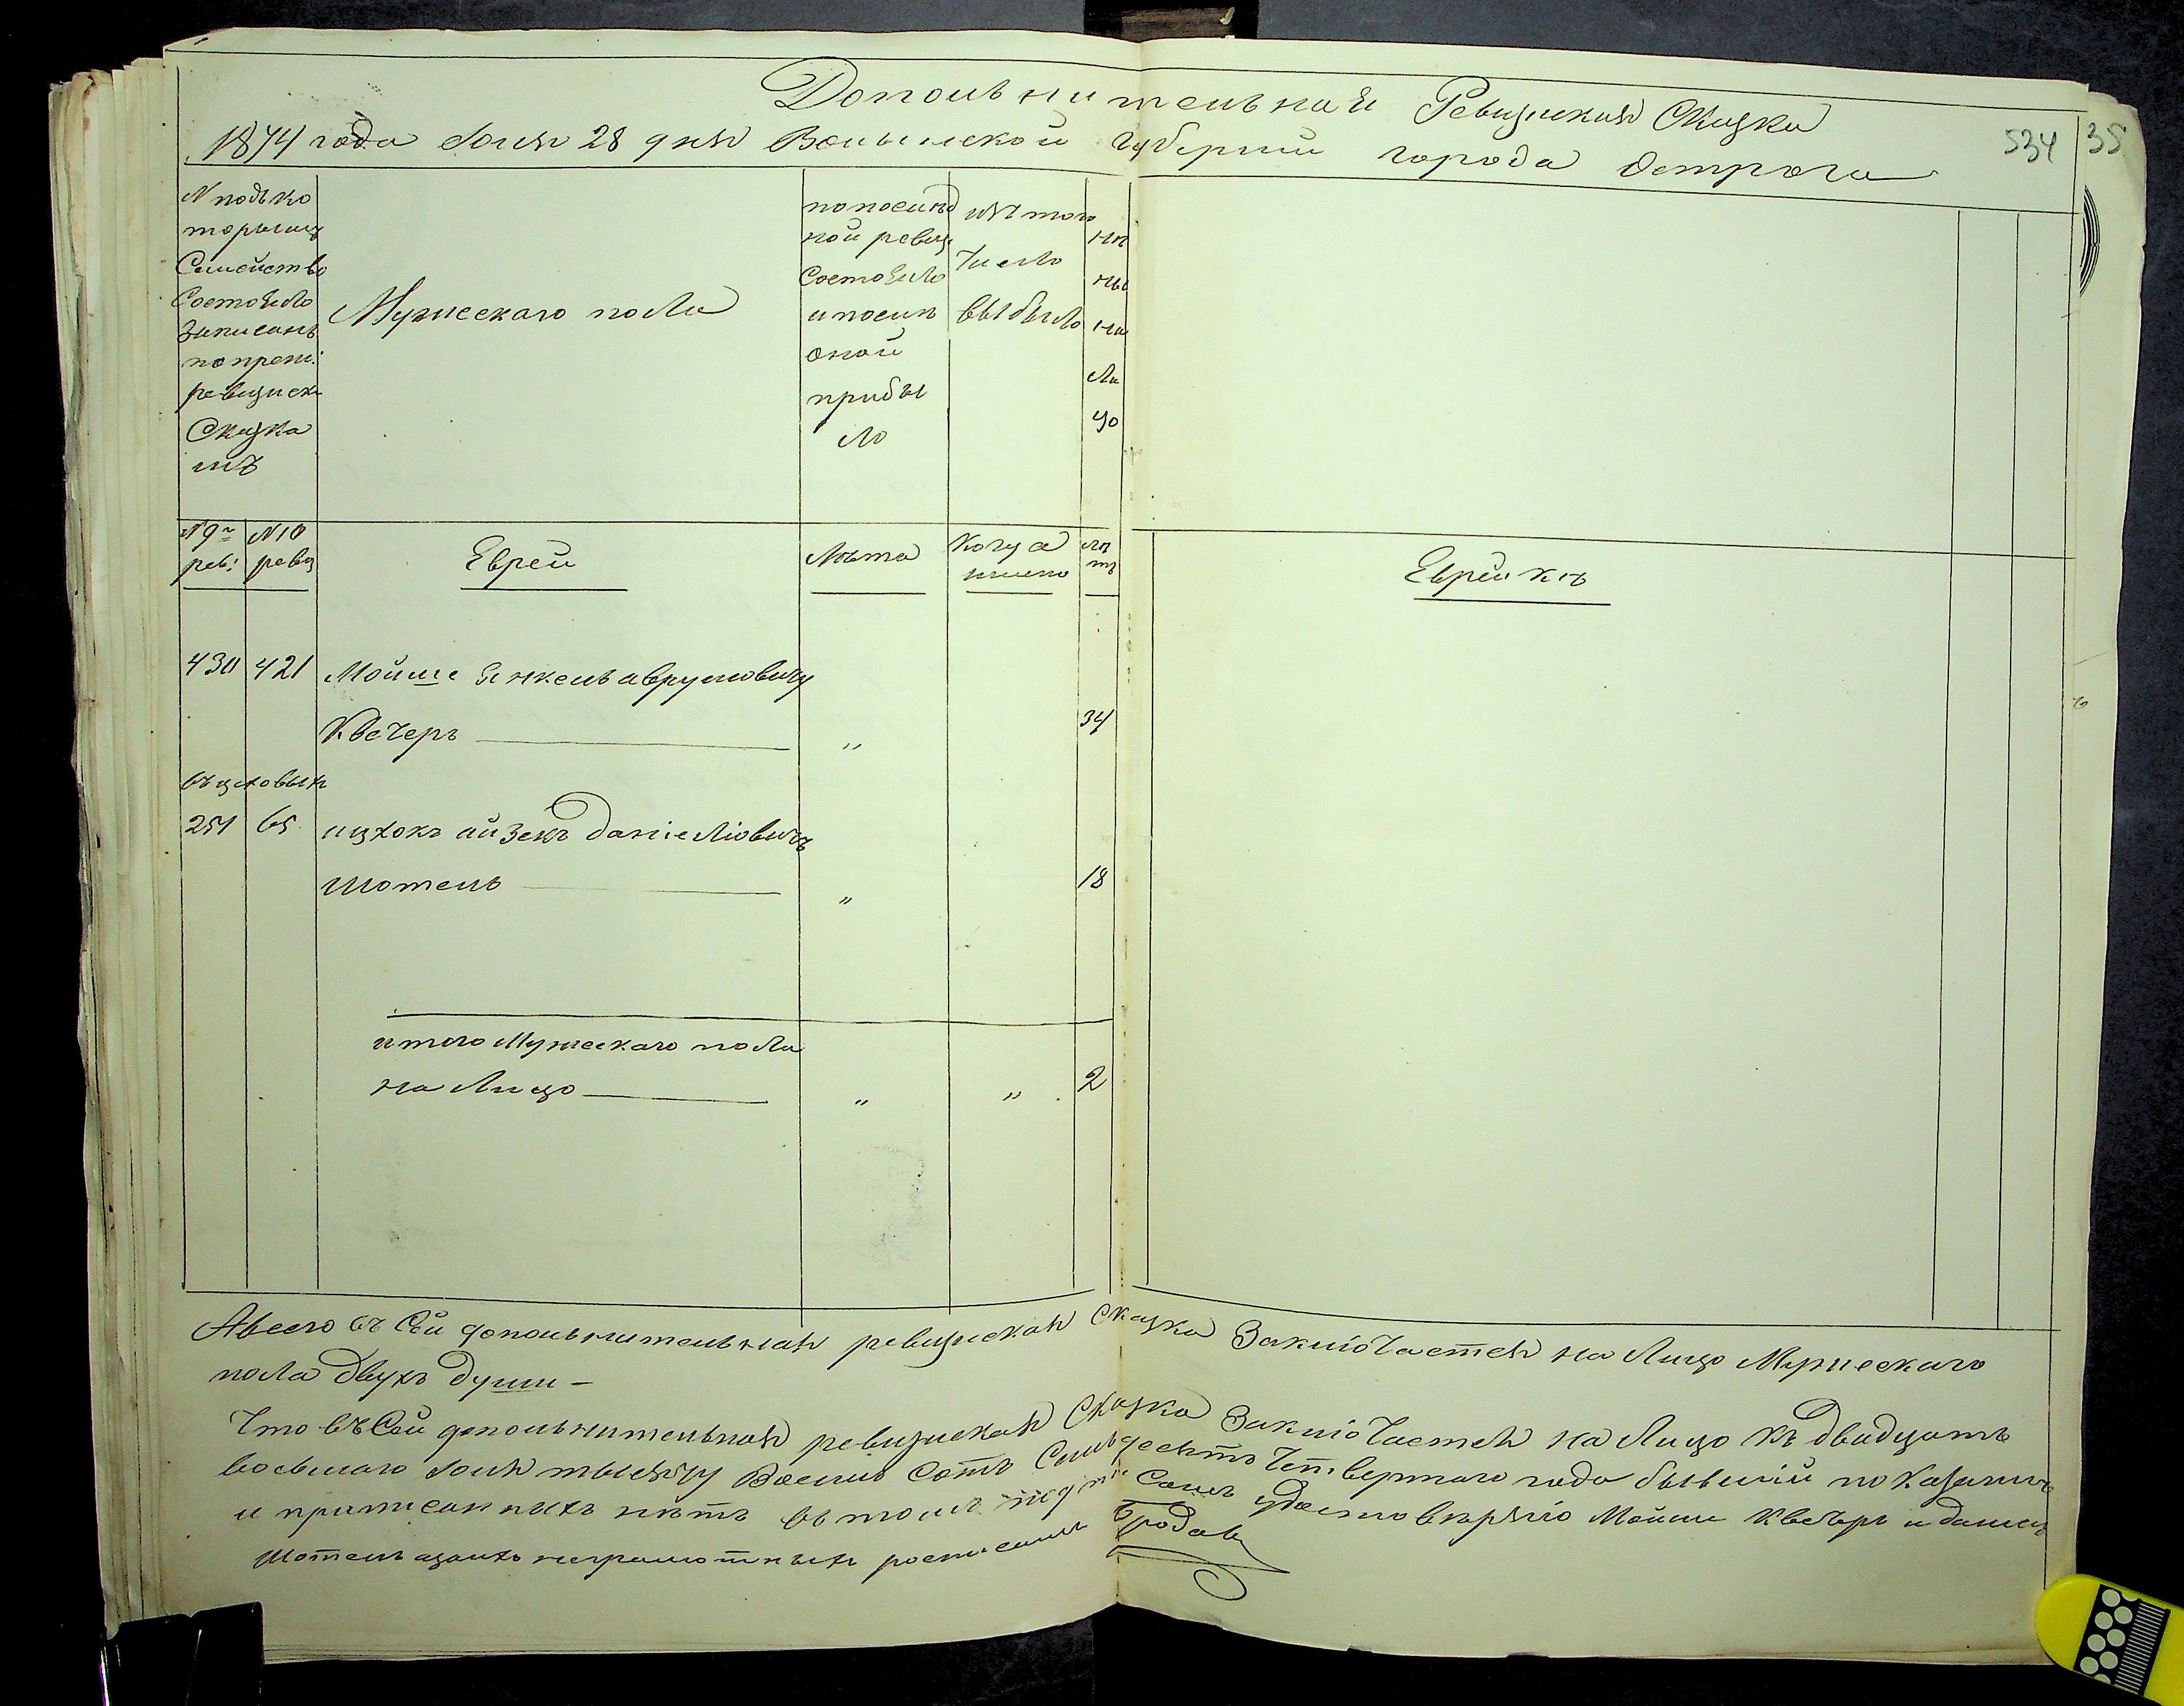 Дополнительная Ревизская Сказка
1874 года Юня 28 дня Волынской Губернии города Острога
534 35
N подъ ко
торымъ
Семейство
Состояло
записанъ
по преж:
ревизск
Сказка
мъ
Мужескаго пола
по послѣд
ной ревиз
Состояло
и послѣ
оной
прибы
ло
изъ того
число
выбыло
нынѣ
на
ли
цо
N 9ой рев: N 10 ревиз
Еврей
Лѣта
Когда имено
лѣтъ
Еврейкъ
430 421 Мойше Янкель Аврумовичъ
Квечеръ „ 34
въ цеховыхъ
251 65 ицхокъ айзекъ даніеліовичъ
Шотель „ 18
итого Мужескаго пола
на Лицо „ „ 2
А всего въ Сей дополнительная ревизская Сказка Заключается на Лицо Мужескаго
пола двухъ души –
Что въ Сей дополнительная ревизская Сказка Заключается на Лицо къ двадцать
восьмаго Юня тысячу Восемь Сотъ Семьдесятъ Четвертаго года бывшій по Казанъ
и приписанныхъ нѣтъ въ томъ подъ Самъ удостовѣряю Мойше Квечеръ и даніелъ
Шотель а за ихъ неграмотныхъ росписалъ Бродав